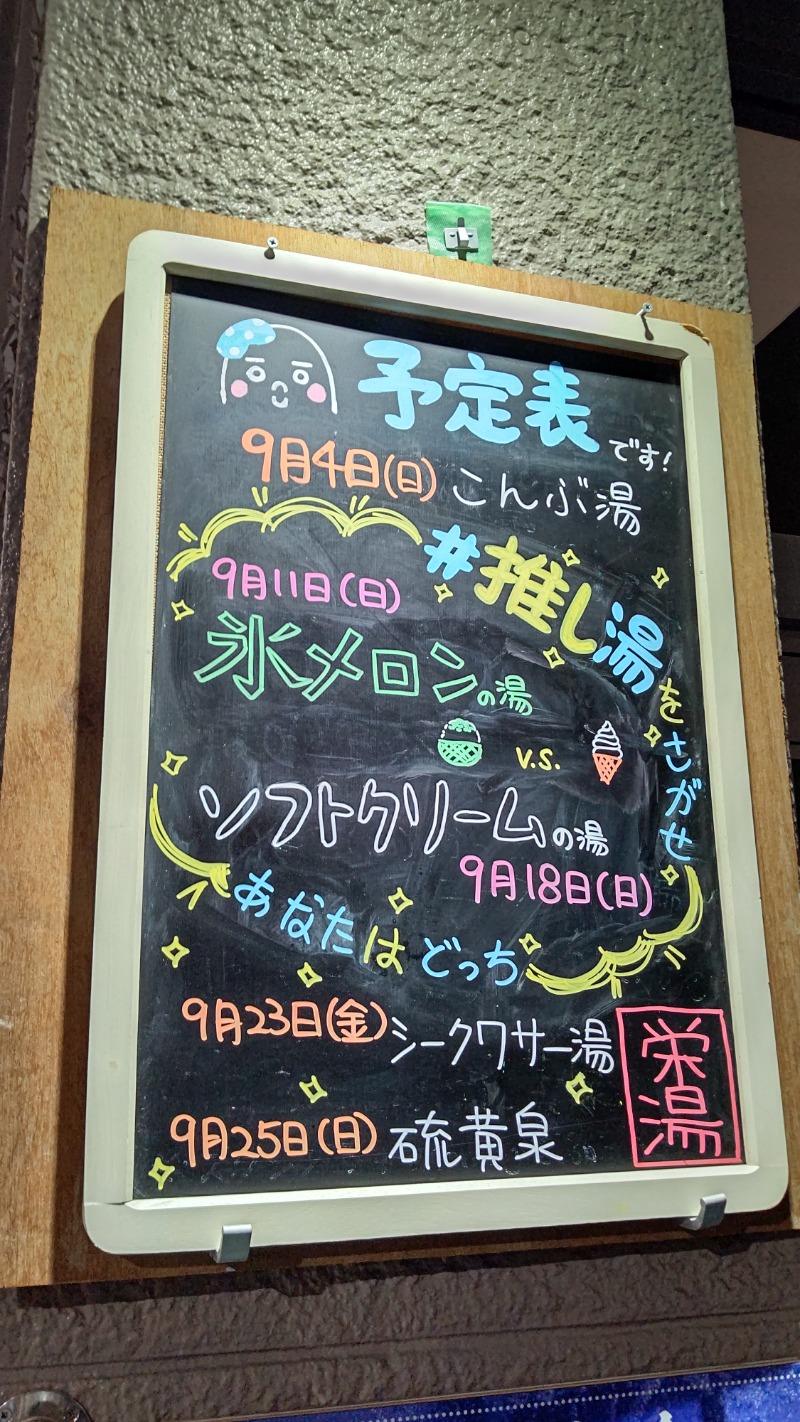 予定表です!
9月4日(日) こんぶ湯
#推し湯をさがせ
9月11日(日)
氷メロンの湯
v.s.
ソフトクリームの湯
9月18日(日)
あなたはどっち
9月23日(金) シークワサー湯
9月25日(日) 硫黄泉
栄湯